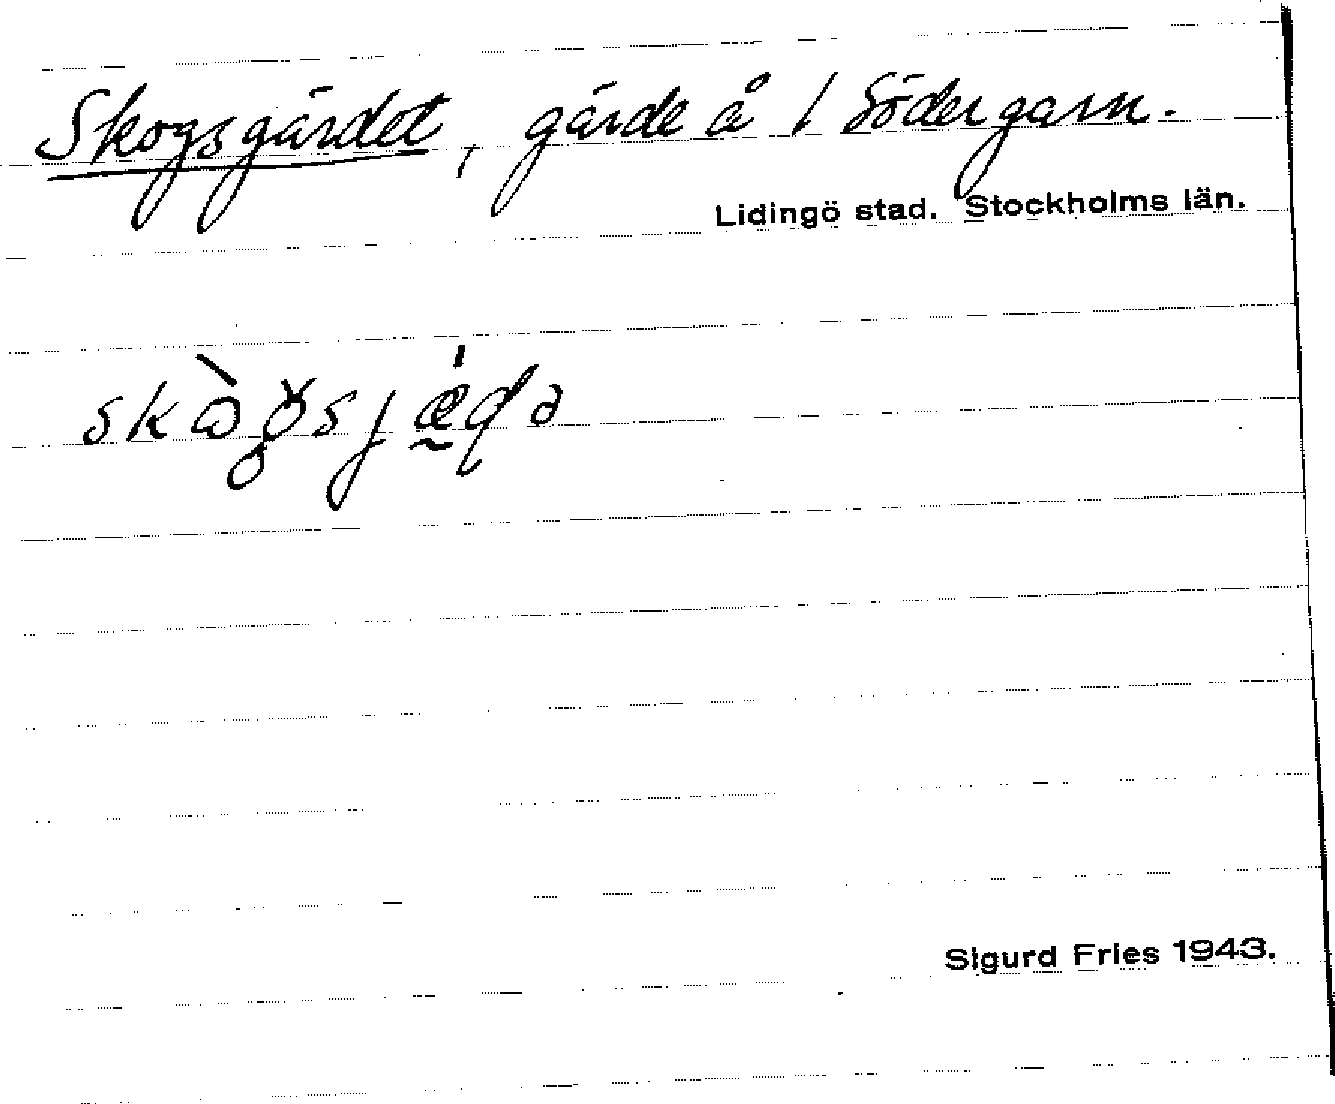 Skogsgärdet, gärde å 1 Södergarn.
Lidingö stad. Stockholms län.
Sigurd Fries 1943.